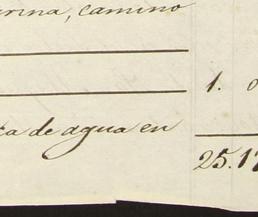 arina, camino
1.
de agua en
25.17